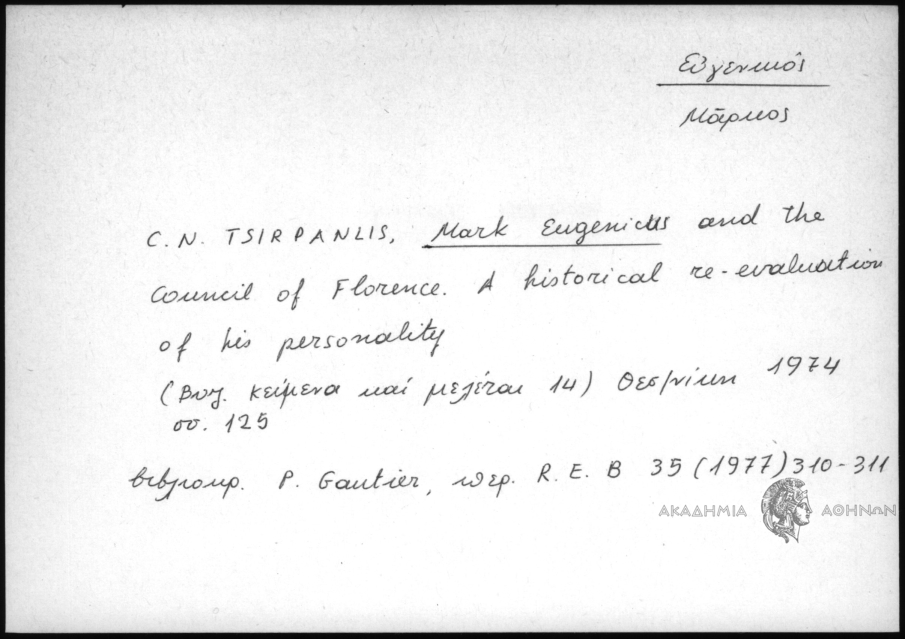 Εὐγενικός
Μάρκος
C. N. TSIRPANLIS, Mark Eugenicus and the
Council of Florence. A historical re-evaluation
of his personality
(Βυζ. κείμενα καί μελέται 14) Θεσ/νίκη 1974
σσ. 125
βιβλιοκρ. P. Gautier, περ. R. E. B 35 (1977) 310-311
ΑΚΑΔΗΜΙΑ ΑΘΗΝΩΝ